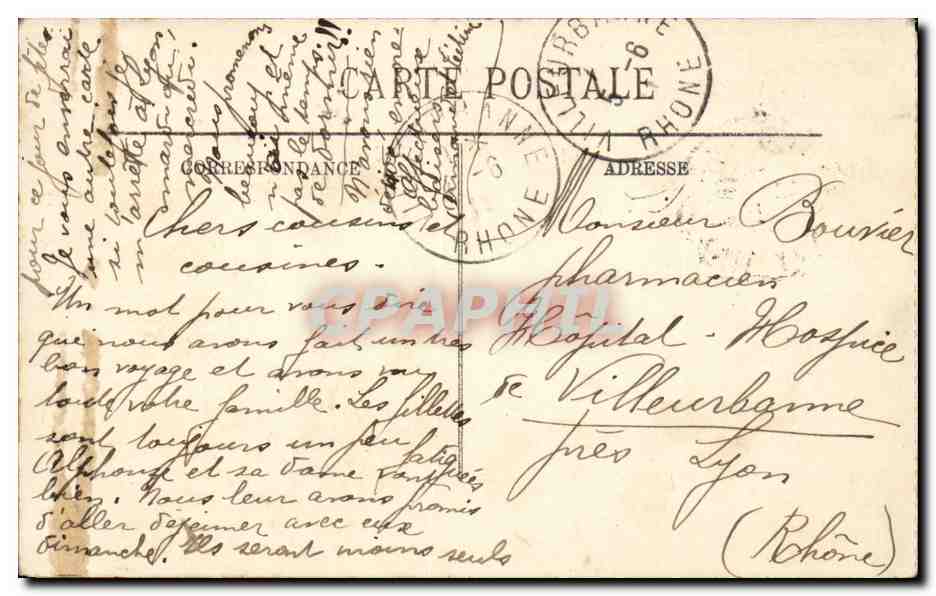 CARTE POSTALE
CORRESPONDANCE
ADRESSE
VILLEURBANNE
RHONE
Chers cousins et
cousines.
Un mot pour vous dire
que nous avons fait un très
bon voyage et avons vu
toute votre famille. Les fillettes
sont toujours un peu fatiguées
Alphonse et sa dame vont
bien. Nous leur avons promis
d'aller déjeuner avec eux
dimanche. Ils seront moins seuls
pour ce jour de fête.
Je vous enverrai
une autre carte
si toutefois je
m'arrête à Lyon
mardi ou
mercredi.
Nous promenons
beaucoup et
n'ai même
pas le temps
de dormir!!
Monsieur Bouvier
pharmacien
Hôpital - Hospice
de Villeurbanne
près Lyon
(Rhône)
CPAPHIL